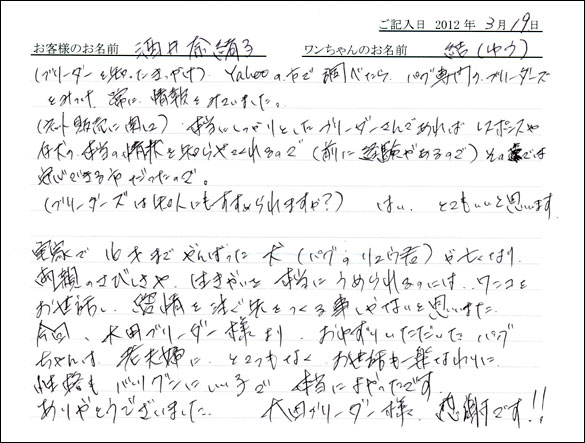 ご記入日 2012年 3月19日
お客様のお名前 酒井 ワンちゃんのお名前 結(ゆう)
(ブリーダーを知ったきっかけ) Yahooの方で調べたら、パグ専門のブリーダーズ
をみつけ、常に情報をみていました。
(ネット販売に関して) 本当にしっかりとしたブリーダーさんであればレスポンスや
仔犬の本当の情報を知らせてくれるので(前に経験があるので)その
安心できるやだったので。
(ブリーダーズは知人にもすすめられますか?) はい、とてもいいと思います。
実家で16才までがんばった犬(パグのリュウ君)が亡くなり、
両親のさびしさや、はきがいを本当にうめられるのには、ワンコを
お世話し、愛情を注ぐ先をつくる事しかないと思いました。
今回、大田ブリーダー様より、おゆずりいただいたパグ
ちゃんは、老夫婦に、とってもよく、お世話も
性格もバツグンにいい子で、本当によかったです。
ありがとうございました。 大田ブリーダー様、感謝です!!